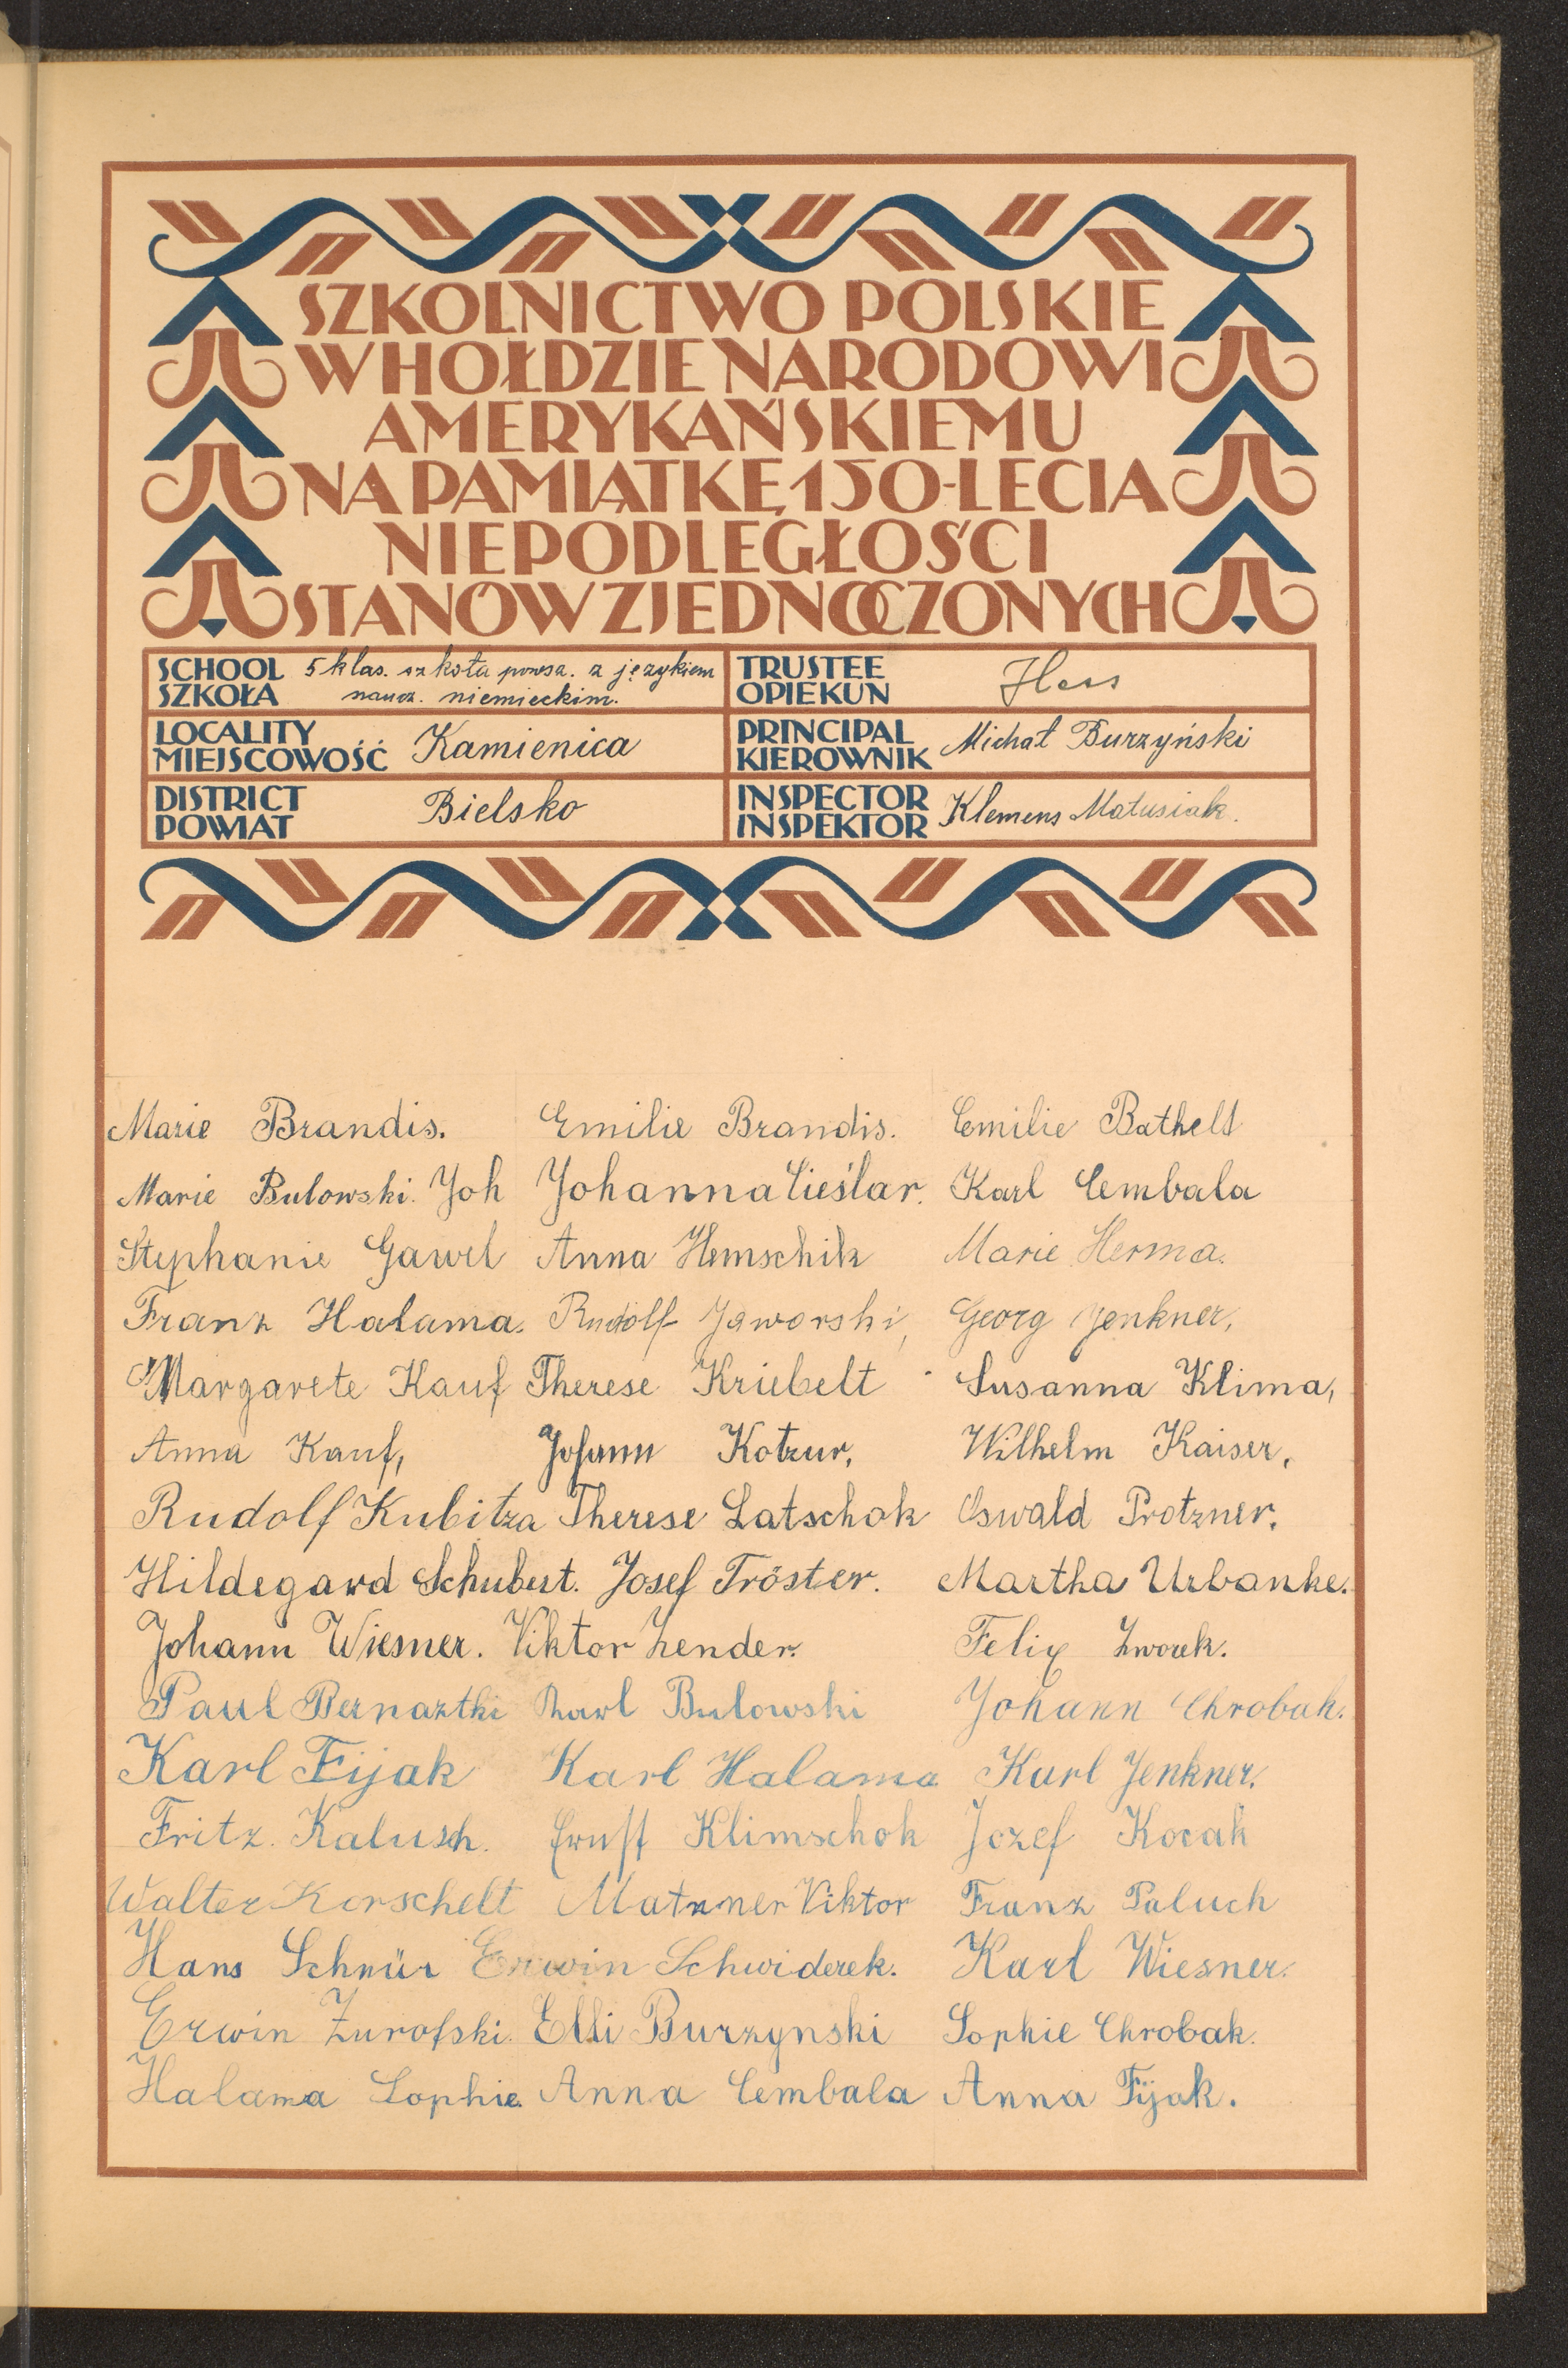 SZKOLNICTWO POLSKIE
W HOŁDZIE NARODOWI
AMERYKAŃSKIEMU
NA PAMIĄTKĘ 150-LECIA
NIEPODLEGŁOŚCI
STANÓW ZJEDNOCZONYCH
SCHOOL SZKOŁA 5 klas. szkoła powsz. z językiem
naucz. niemieckim.
TRUSTEE OPIEKUN Hess
LOCALITY MIEJSCOWOŚĆ Kamienica
PRINCIPAL KIEROWNIK Michał Burzyński
DISTRICT POWIAT Bielsko
INSPECTOR INSPEKTOR Klemens Matusiak.
Marie Brandis. Emilie Brandis. Emilie Bathelt
Marie Bulowski. Joh Johanna Cieślar. Karl Cembala
Stephanie Gawel Anna Hemschik Marie Herma.
Franz Halama. Rudolf Jaworski, Georg Jenkner,
Margarete Kauf Therese Kriebelt Susanna Klima,
Anna Kauf, Johann Kotzur, Wilhelm Kaiser,
Rudolf Kubitza Therese Latschok Oswald Protzner.
Hildegard Schubert. Josef Tröster. Martha Urbanke.
Johann Wiesner. Viktor Zender. Felix Zworek.
Paul Bernaztki Karl Bulowski Johann Chrobak.
Karl Fijak Karl Halama Karl Jenkner.
Fritz. Kalusch. Ernst Klimschok Jozef Kocak
Walter Korschelt Matzner Viktor Franz Paluch
Hans Schnür Erwin Schwiderek. Karl Wiesner.
Erwin Zurofski. Elli Burzynski Sophie Chrobak.
Halama Sophie. Anna Cembala Anna Fijak.